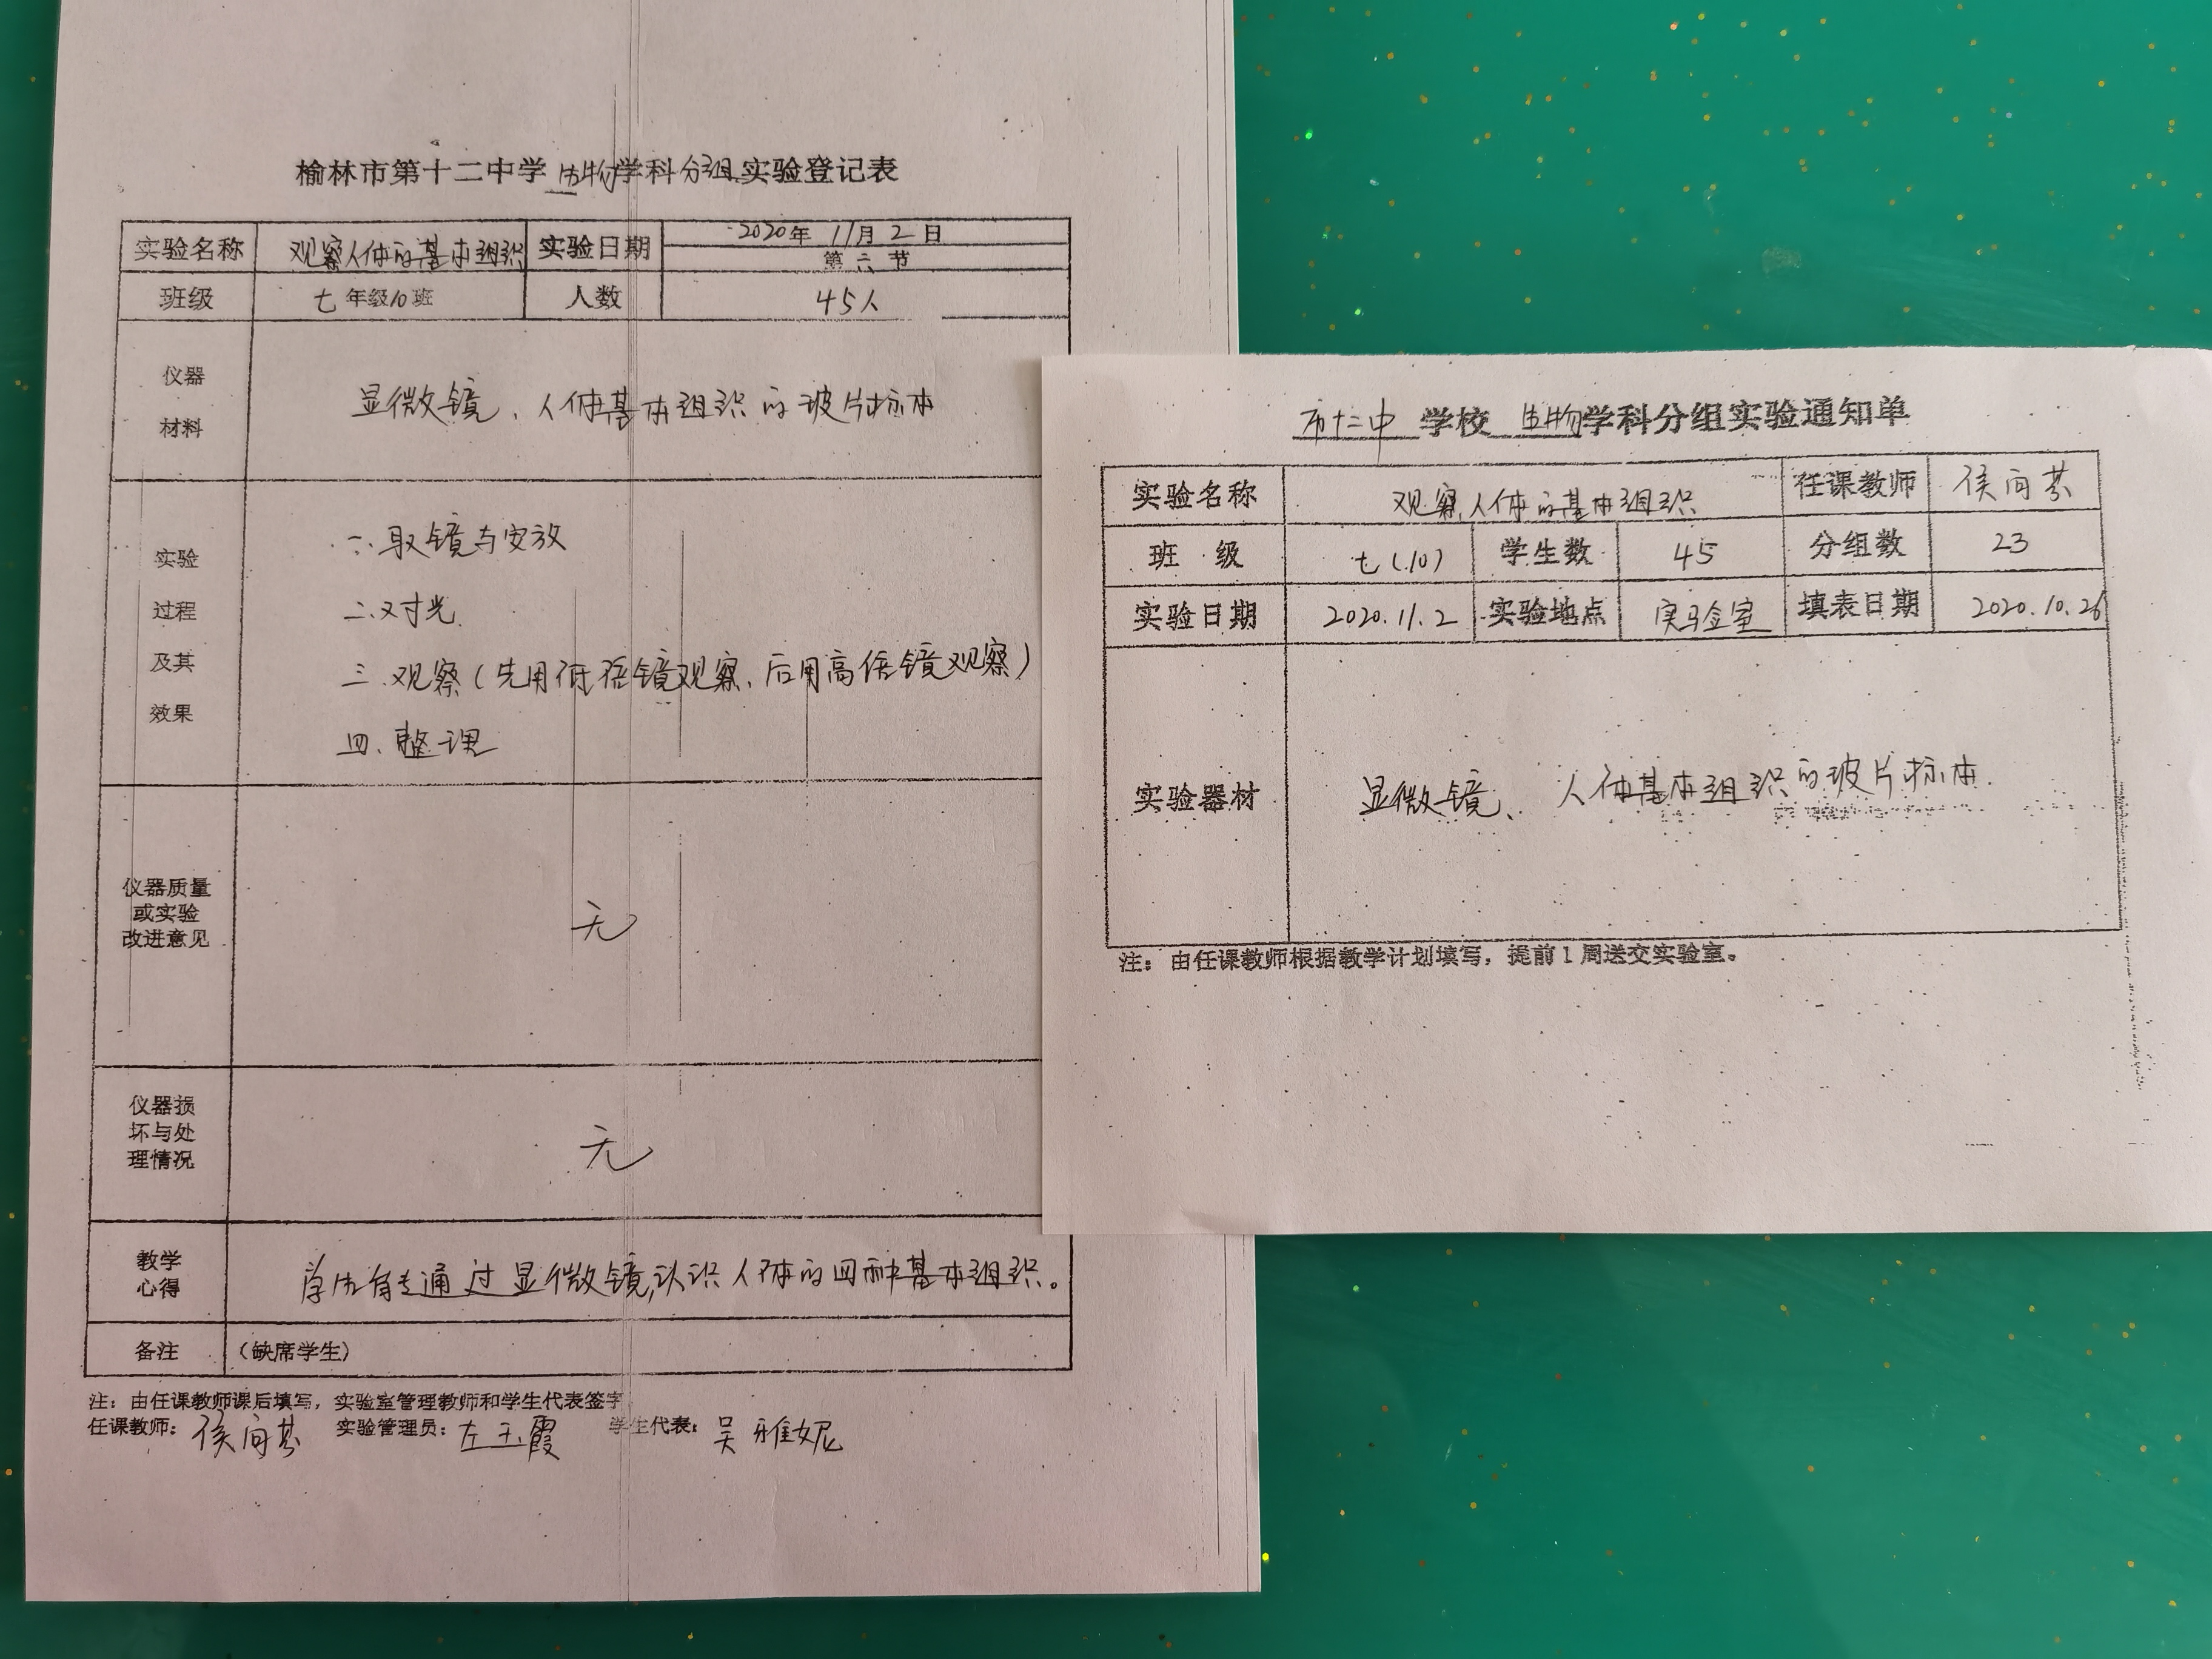 榆林市第十二中学 生物学科分组实验登记表
实验名称 观察人体的基本组织 实验日期 2020年 11月 2日
第六节
班级 七年级10班 人数 45人
仪器
材料
显微镜、人体基本组织的玻片标本
实验
过程
及其
效果
一.取镜与安放
二.对光
三.观察(先用低倍镜观察,后用高倍镜观察)
四.整理
仪器质量
或实验
改进意见
无
仪器损
坏与处
理情况
无
教学
心得
学生能通过显微镜,认识人体的四种基本组织。
备注 (缺席学生)
注:由任课教师课后填写,实验室管理教师和学生代表签字
任课教师: 侯向芬 实验管理员: 左玉霞 学生代表: 吴雅妮
市十二中 学校 生物学科分组实验通知单
实验名称 观察人体的基本组织 任课教师 侯向芬
班 级 七(10) 学生数 45 分组数 23
实验日期 2020.11.2 实验地点 实验室 填表日期 2020.10.26
实验器材 显微镜、人体基本组织的玻片标本.
注:由任课教师根据教学计划填写,提前1周送交实验室。